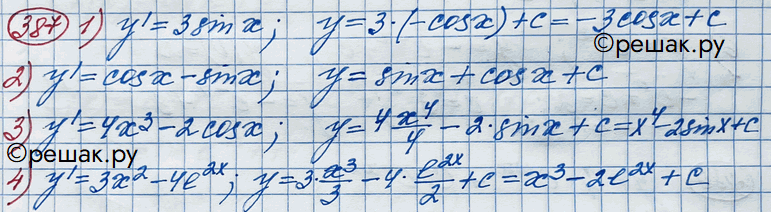 387 1) y' = 3 sin x; y = 3·(-cos x) + c = -3 cos x + c
©решак.ру
2) y' = cos x - sin x; y = sin x + cos x + c
3) y' = 4x³ - 2 cos x; y = 4 x⁴/4 - 2·sin x + c = x⁴ - 2 sin x + c
©решак.ру
4) y' = 3x² - 4e²ˣ; y = 3·x³/3 - 4·e²ˣ/2 + c = x³ - 2e²ˣ + c